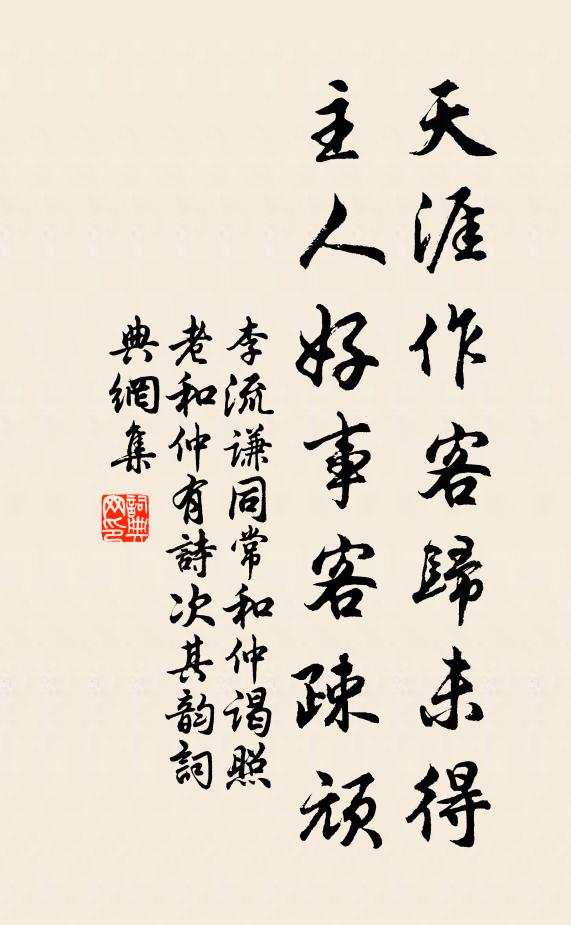 天涯作客歸未得
主人好事客疎頑
李流谦同常和仲谒照
老和仲有詩次其韵詞
典網集
詞典网印